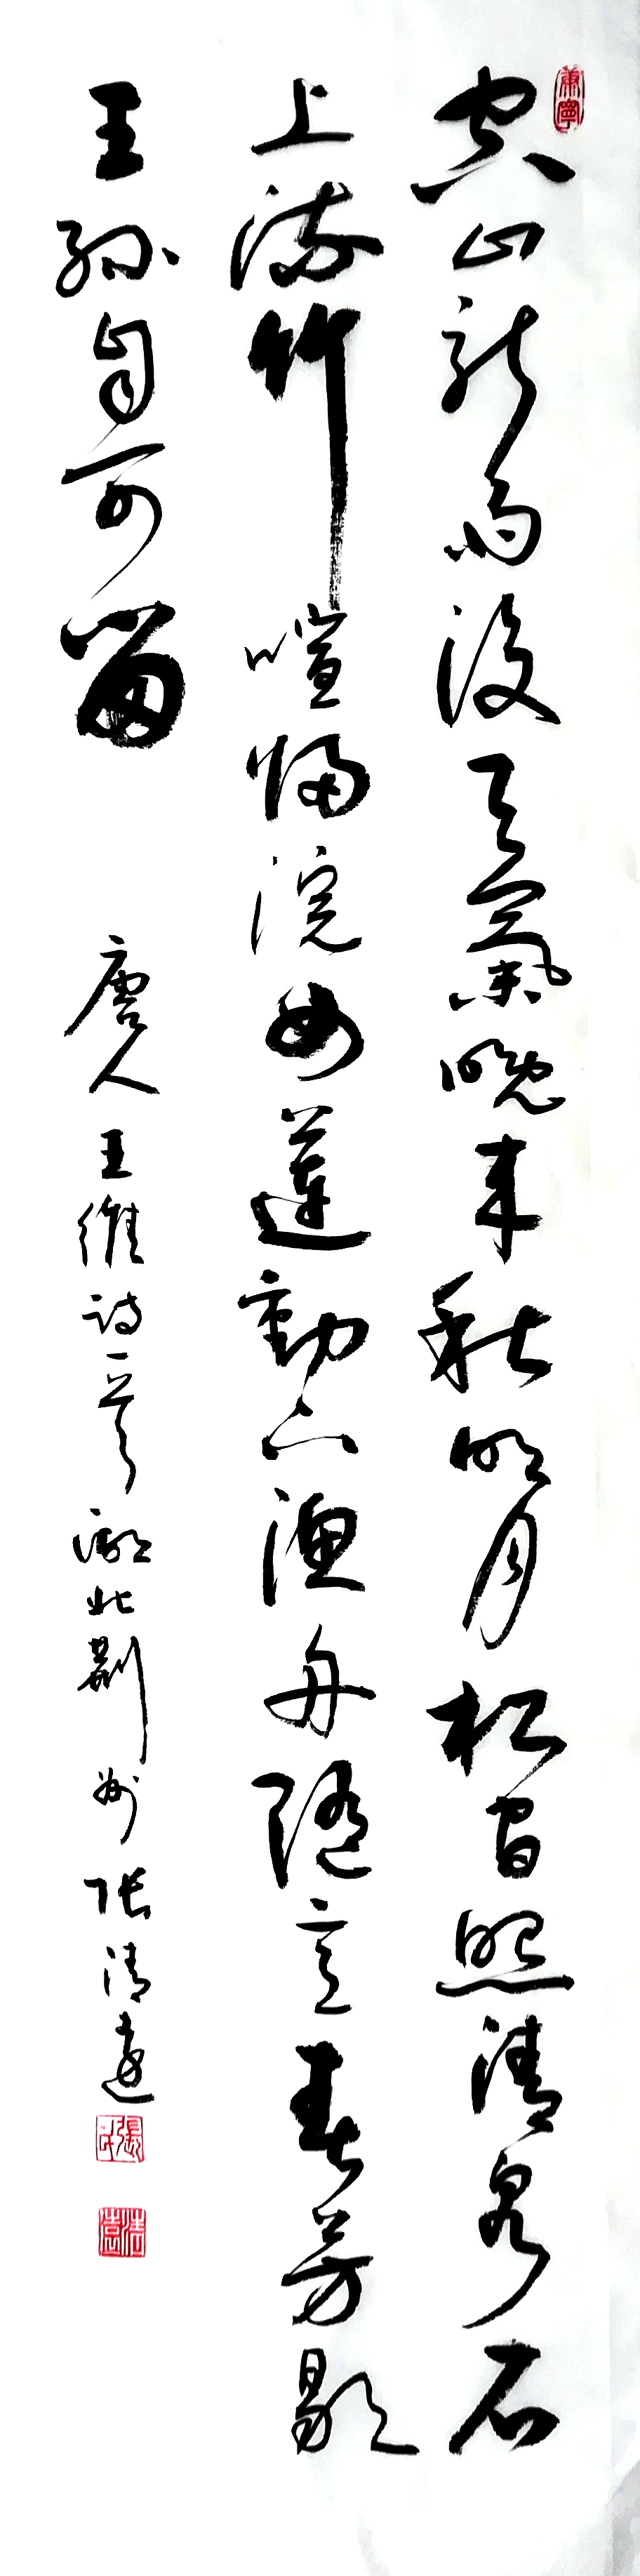 康寧
空山新雨後天氣晚來秋明月松間照清泉石
上流竹喧歸浣女蓮動下漁舟隨意春芳歇
王孫自可留 唐人王維詩一首 湖北荊州張清遠